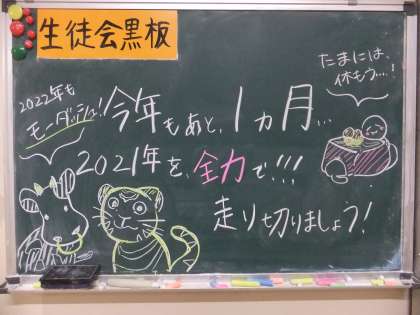 生徒会黒板
2022年も
モーダッシュ!
今年もあと、1ヵ月…
たまには、
休もう…!
2021年を、全力で!!!
走り切りましょう!